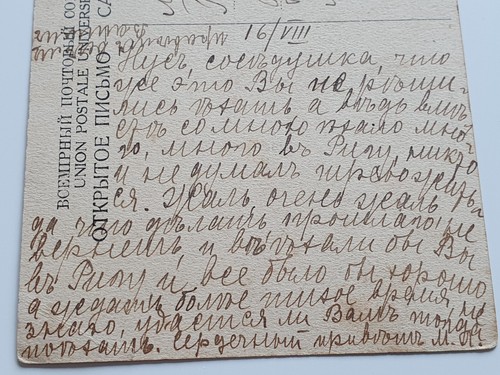 ВСЕМІРНЫЙ ПОЧТОВЫЙ СО
UNION POSTALE UNIVERSE
ОТКРЫТОЕ ПИСЬМО CA
16/VIII
Нусъ сосѣдушка, что
же это Вы не рѣши-
лись ѣхать а вѣдь вмѣ-
стѣ со мною ѣхало мно-
го, много въ Ригу, никто
и не думалъ тревожить-
ся. Жаль, очень жаль
да что дѣлать прошлаго не
вернешь, и въѣхали бы Вы
въ Ригу и все было бы хорошо
а ждать болѣе тихое время не
знаю, удастся ли Вамъ тогда
поѣхать. Сердечный привѣтъ М.